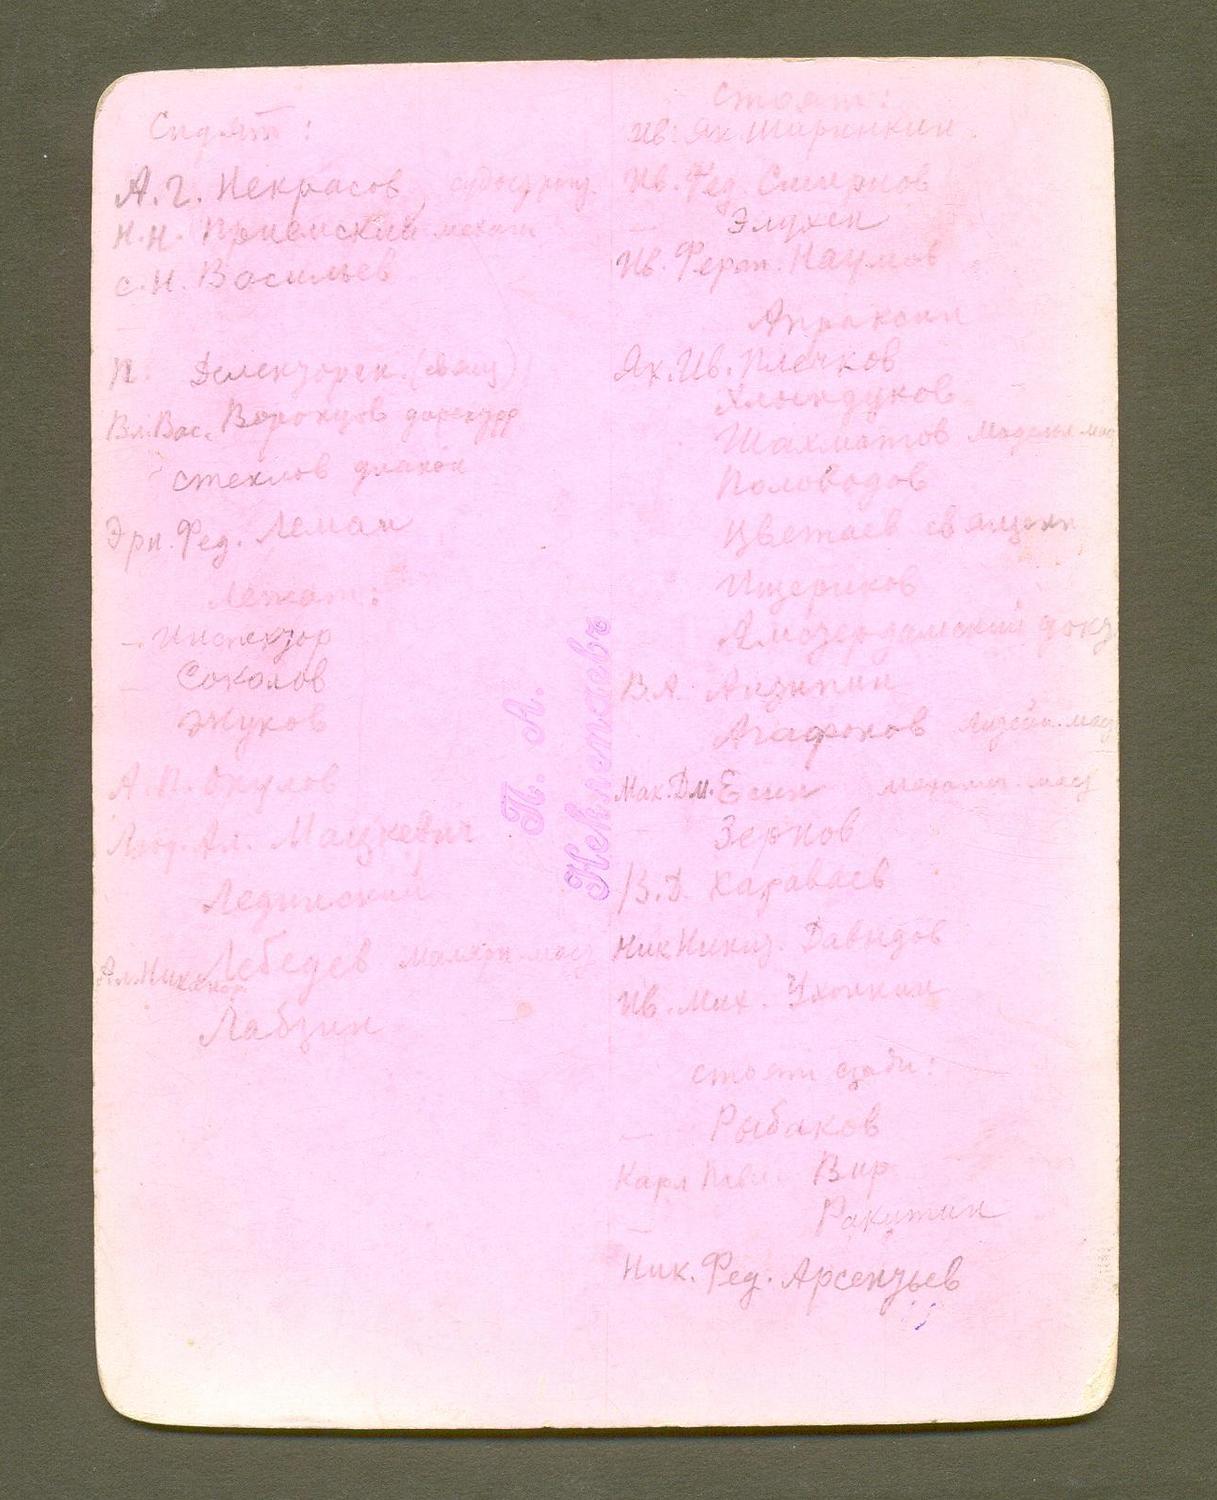 Сидят:
А.Г. Некрасов судостроит.
Н.Н. Приемский механ
С.Н. Васильев
П. (свящ)
Вл. Вас. Воронцов директор
Стеклов диакон
Эрн. Фед. Леман
Лежат:
— Инспектор
— Соколов
Жуков
А.П. Окулов
Люд. Ал. Мацкевич
Лединский
Ал. Никанор. Лебедев малярн. маст
Лабзин
П. А.
Неклепаевъ
Стоят:
Ив. Як. Ширинкин
Ив. Фед. Смирнов
— Элухен
Ив. Ферап. Наумов
Апраксин
Як. Ив. Плечков
Хлындуков
Шахматов модельн. мас
Половодов
Цветаев священн
Ищериков
Амстердамский докт
В.А. Анзипин
Агафонов литейн. маст
Мак. Дм. Есин механич. маст
— Зернов
В.Д. Караваев
Ник. Никит. Давыдов
Ив. Мих.
стоят сзади:
— Рыбаков
Карл Павл. Вир
— Ракитин
Ник. Фед. Арсентьев